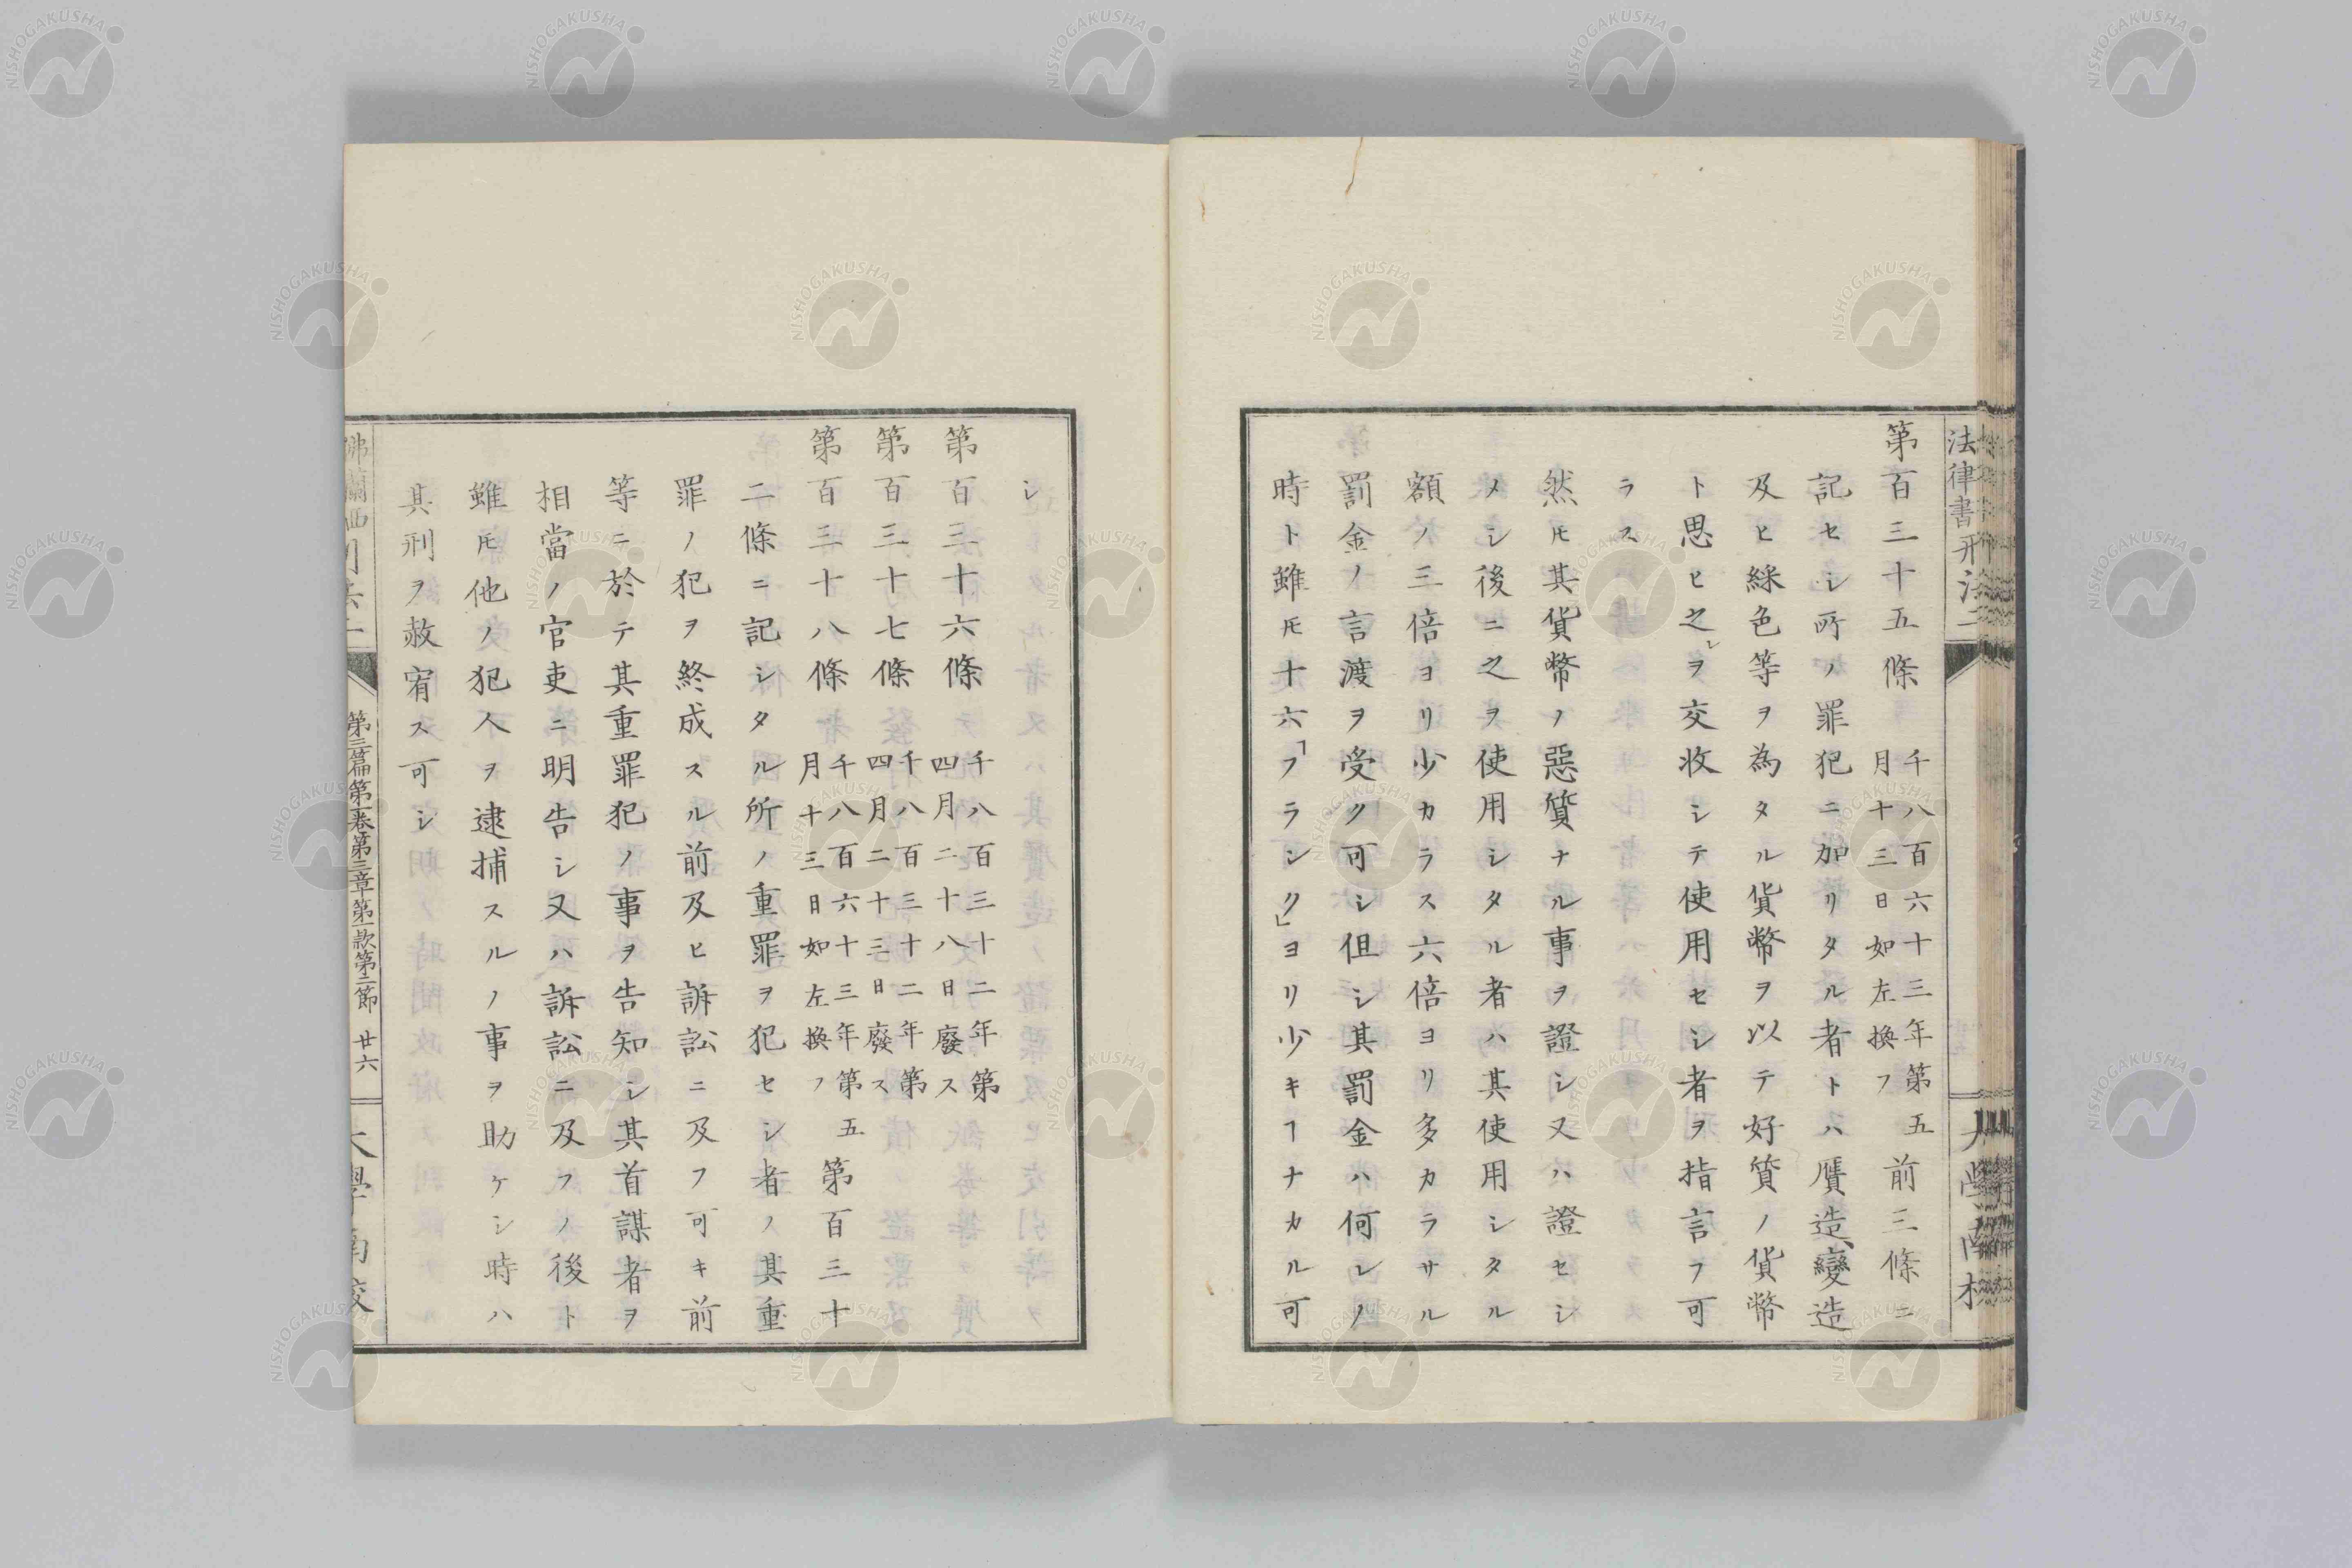 法律書刑法二
第百三十五條 千八百六十三年第五月十三日如左換フ 前三條ニ
記セシ所ノ罪犯ニ加リタル者トハ贋造、變造
及ヒ綵色等ヲ為タル貨幣ヲ以テ好貨ノ貨幣
ト思ヒ之ヲ交收シテ使用セシ者ヲ指言フ可
ラス
然𪜈其貨幣ノ惡質ナル事ヲ證シ又ハ證セシ
メシ後ニ之ヲ使用シタル者ハ其使用シタル
額ノ三倍ヨリ少カラス六倍ヨリ多カラサル
罰金ノ言渡ヲ受ク可シ但シ其罰金ハ何レノ
時ト雖𪜈十六「フランク」ヨリ少キヿナカル可
シ
第百三十六條 千八百三十二年第四月二十八日廢ス
第百三十七條 千八百三十二年第四月二十三日廢ス
第百三十八條 千八百六十三年第五月十三日如左換フ 第百三十
二條ニ記シタル所ノ重罪ヲ犯セシ者ノ其重
罪ノ犯ヲ終成スル前及ヒ訴訟ニ及フ可キ前
等ニ於テ其重罪犯ノ事ヲ告知シ其首謀者ヲ
相當ノ官吏ニ明告シ又ハ訴訟ニ及フノ後ト
雖𪜈他ノ犯人ヲ逮捕スルノ事ヲ助ケシ時ハ
其刑ヲ赦宥ス可シ
第三篇第一卷第三章第一款第二節 廿六
NISHOGAKUSHA